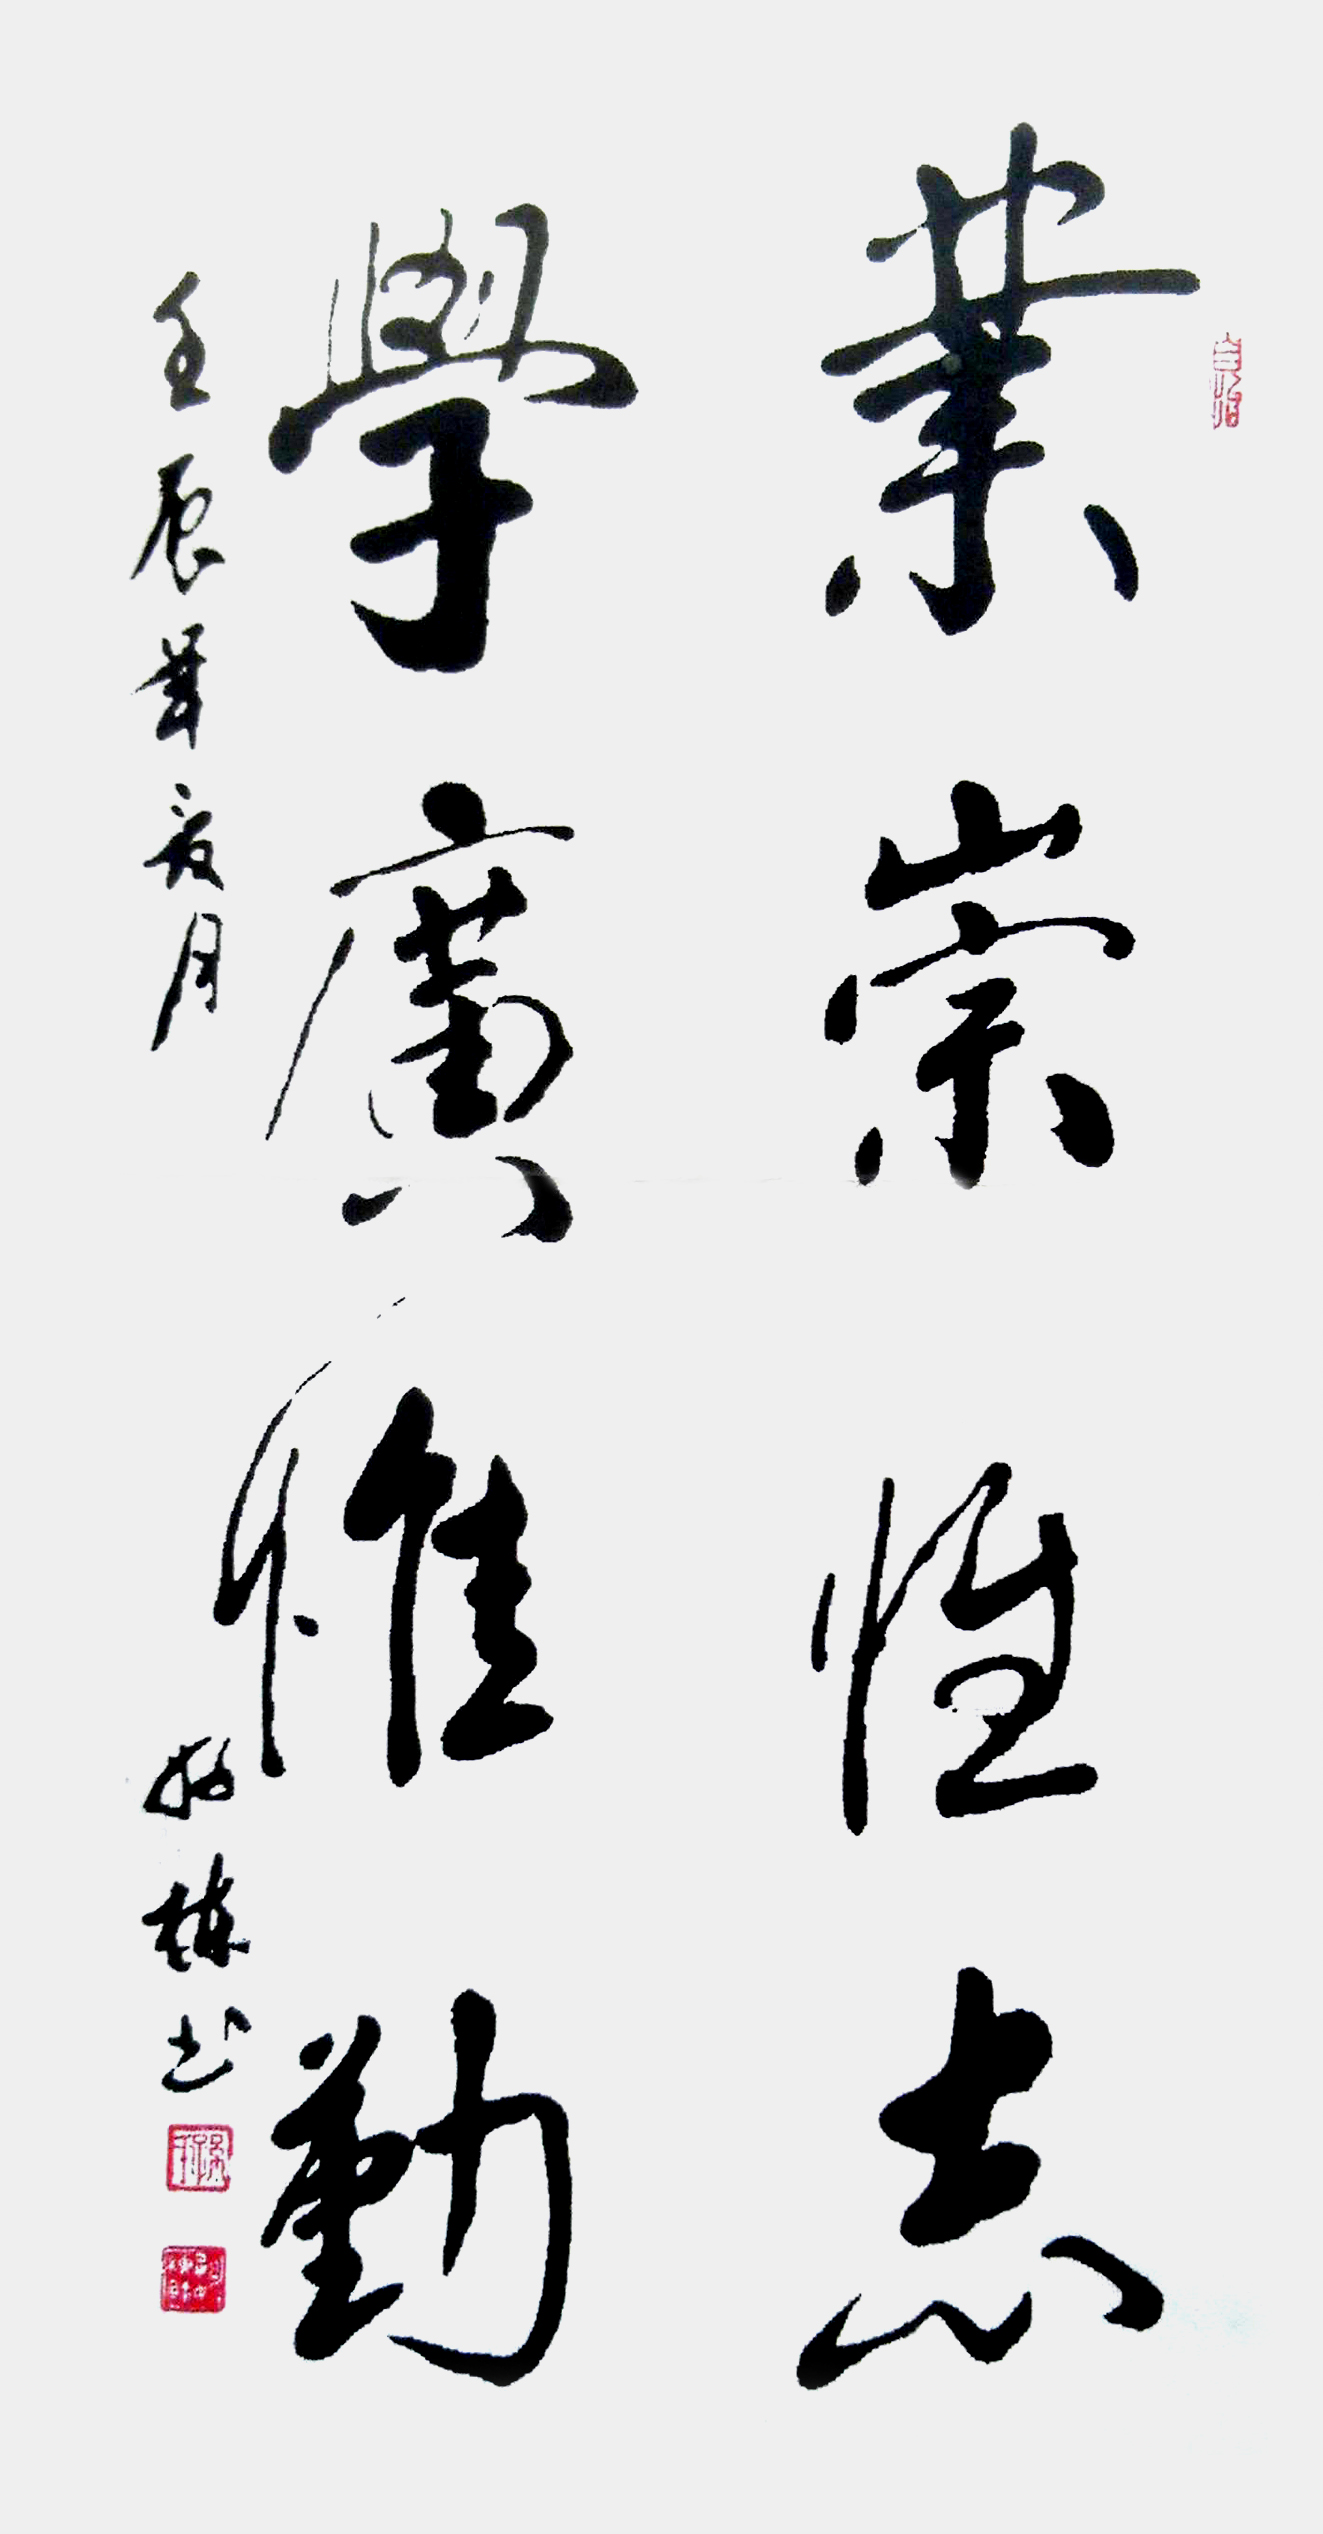 業崇惟志
學廣惟勤
壬辰年夏月
書